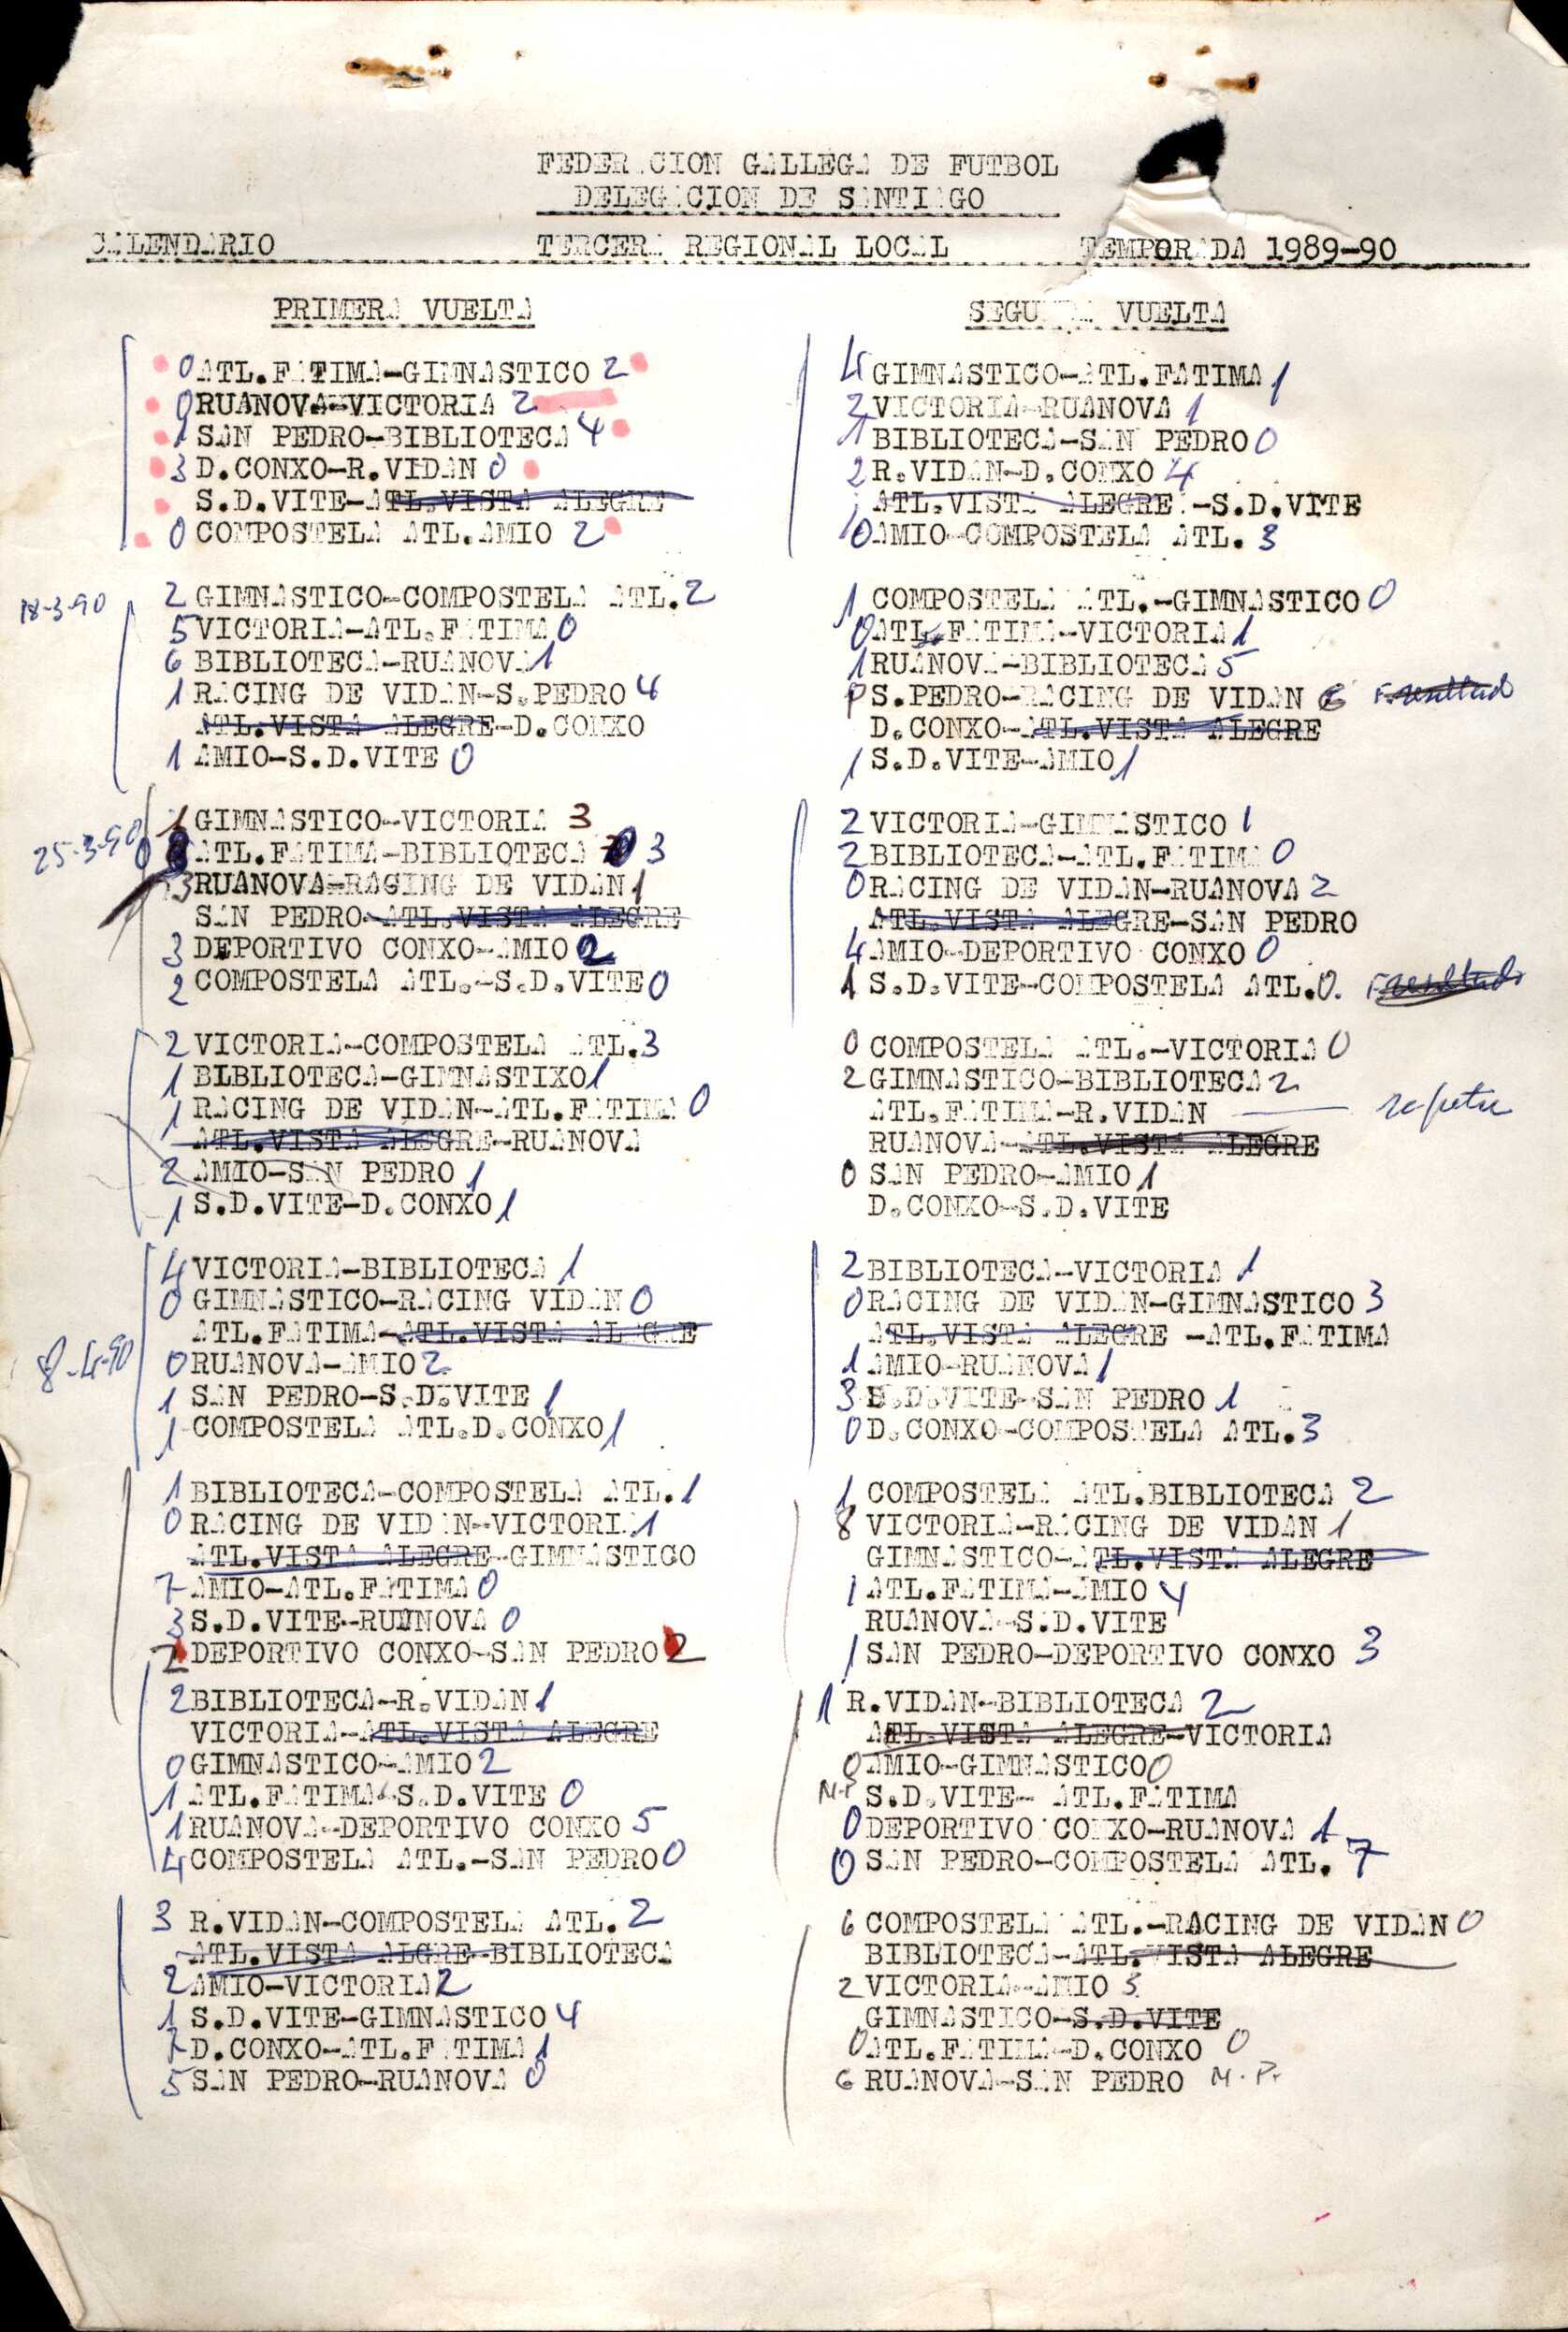 FEDERACION GALLEGA DE FUTBOL
DELEGACION DE SANTIAGO
CALENDARIO TERCERA REGIONAL LOCAL TEMPORADA 1989-90
PRIMERA VUELTA
0 ATL.FATIMA-GIMNASTICO 2
0 RUANOVA-VICTORIA 2
1 SAN PEDRO-BIBLIOTECA 4
3 D.CONXO-R.VIDAN 0
S.D.VITE-ATL.VISTA ALEGRE
0 COMPOSTELA ATL.AMIO 2
18-3-90
2 GIMNASTICO-COMPOSTELA ATL. 2
5 VICTORIA-ATL.FATIMA 0
6 BIBLIOTECA-RUANOVA 1
1 RACING DE VIDAN-S.PEDRO 4
ATL.VISTA ALEGRE-D.CONXO
1 AMIO-S.D.VITE 0
25-3-90
1 GIMNASTICO-VICTORIA 3
0 ATL.FATIMA-BIBLIOTECA 3
3 RUANOVA-RACING DE VIDAN 1
SAN PEDRO-ATL.VISTA ALEGRE
3 DEPORTIVO CONXO-AMIO 2
2 COMPOSTELA ATL.-S.D.VITE 0
2 VICTORIA-COMPOSTELA ATL. 3
1 BLBLIOTECA-GIMNASTIXO 1
1 RACING DE VIDAN-ATL.FATIMA 0
ATL.VISTA ALEGRE-RUANOVA
2 AMIO-SAN PEDRO 1
1 S.D.VITE-D.CONXO 1
4 VICTORIA-BIBLIOTECA 1
0 GIMNASTICO-RACING VIDAN 0
ATL.FATIMA-ATL.VISTA ALEGRE
8-4-90
0 RUANOVA-AMIO 2
1 SAN PEDRO-S.D.VITE 1
1 COMPOSTELA ATL.D.CONXO 1
1 BIBLIOTECA-COMPOSTELA ATL. 1
0 RACING DE VIDAN-VICTORIA 1
ATL.VISTA ALEGRE-GIMNASTICO
7 AMIO-ATL.FATIMA 0
3 S.D.VITE-RUANOVA 0
2 DEPORTIVO CONXO-SAN PEDRO 2
2 BIBLIOTECA-R.VIDAN 1
VICTORIA-ATL.VISTA ALEGRE
0 GIMNASTICO-AMIO 2
1 ATL.FATIMA-S.D.VITE 0
1 RUANOVA-DEPORTIVO CONXO 5
4 COMPOSTELA ATL.-SAN PEDRO 0
3 R.VIDAN-COMPOSTELA ATL. 2
ATL.VISTA ALGRE-BIBLIOTECA
2 AMIO-VICTORIA 2
1 S.D.VITE-GIMNASTICO 4
7 D.CONXO-ATL.FATIMA 1
5 SAN PEDRO-RUANOVA 0
SEGUNDA VUELTA
4 GIMNASTICO-ATL.FATIMA 1
2 VICTORIA-RUANOVA 1
1 BIBLIOTECA-SAN PEDRO 0
2 R.VIDAN-D.CONXO 4
ATL.VISTA ALEGRE -S.D.VITE
0 AMIO-COMPOSTELA ATL. 3
1 COMPOSTELA ATL.-GIMNASTICO 0
0 ATL.FATIMA-VICTORIA 1
1 RUANOVA-BIBLIOTECA 5
S.PEDRO-RACING DE VIDAN
D.CONXO-ATL.VISTA ALEGRE
1 S.D.VITE-AMIO 1
2 VICTORIA-GIMNASTICO 1
2 BIBLIOTECA-ATL.FATIMA 0
0 RACING DE VIDAN-RUANOVA 2
ATL.VISTA ALEGRE-SAN PEDRO
4 AMIO-DEPORTIVO CONXO 0
1 S.D.VITE-COMPOSTELA ATL. 0.
0 COMPOSTELA ATL.-VICTORIA 0
2 GIMNASTICO-BIBLIOTECA 2
ATL.FATIMA-R.VIDAN
RUANOVA-ATL.VISTA ALEGRE
0 SAN PEDRO-AMIO 1
D.CONXO-S.D.VITE
2 BIBLIOTECA-VICTORIA 1
0 RACING DE VIDAN-GIMNASTICO 3
ATL.VISTA ALEGRE -ATL.FATIMA
1 AMIO-RUANOVA 1
3 S.D.VITE-SAN PEDRO 1
0 D.CONXO-COMPOSTELA ATL. 3
1 COMPOSTELA ATL.BIBLIOTECA 2
8 VICTORIA-RACING DE VIDAN 1
GIMNASTICO-ATL.VISTA ALEGRE
1 ATL.FATIMA-AMIO 4
RUANOVA-S.D.VITE
1 SAN PEDRO-DEPORTIVO CONXO 3
1 R.VIDAN-BIBLIOTECA 2
ATL.VISTA ALEGRE-VICTORIA
0 AMIO-GIMNASTICO 0
N.P S.D.VITE- ATL.FATIMA
0 DEPORTIVO CONXO-RUANOVA 1
0 SAN PEDRO-COMPOSTELA ATL. 7
6 COMPOSTELA ATL.-RACING DE VIDAN 0
BIBLIOTECA-ATL.VISTA ALEGRE
2 VICTORIA-AMIO 3
GIMNASTICO-S.D.VITE
0 ATL.FATIMA-D.CONXO 0
6 RUANOVA-SAN PEDRO N.P.